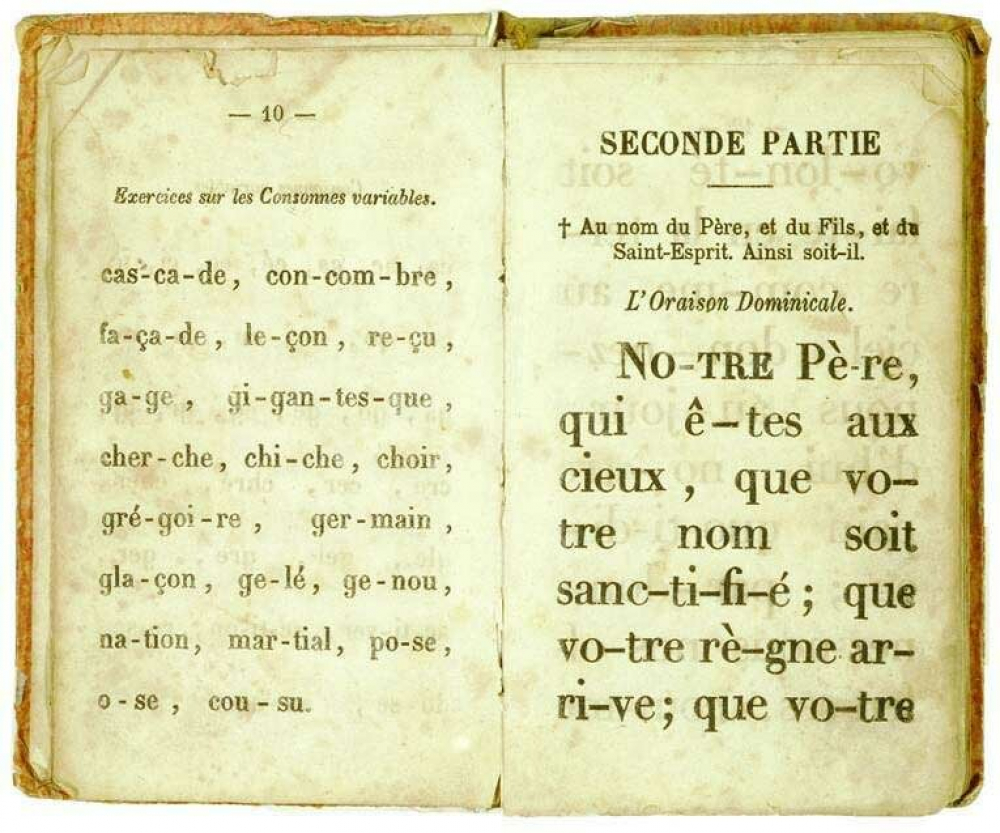 — 10 —
Exercices sur les Consonnes variables.
cas-ca-de, con-com-bre,
fa-ça-de, le-çon, re-çu,
ga-ge, gi-gan-tes-que,
cher-che, chi-che, choir,
gré-goi-re, ger-main,
gla-çon, ge-lé, ge-nou,
na-tion, mar-tial, po-se,
o-se, cou-su.
SECONDE PARTIE
† Au nom du Père, et du Fils, et du
Saint-Esprit. Ainsi soit-il.
L'Oraison Dominicale.
NO-TRE Pè-re,
qui ê-tes aux
cieux, que vo-
tre nom soit
sanc-ti-fi-é; que
vo-tre rè-gne ar-
ri-ve; que vo-tre